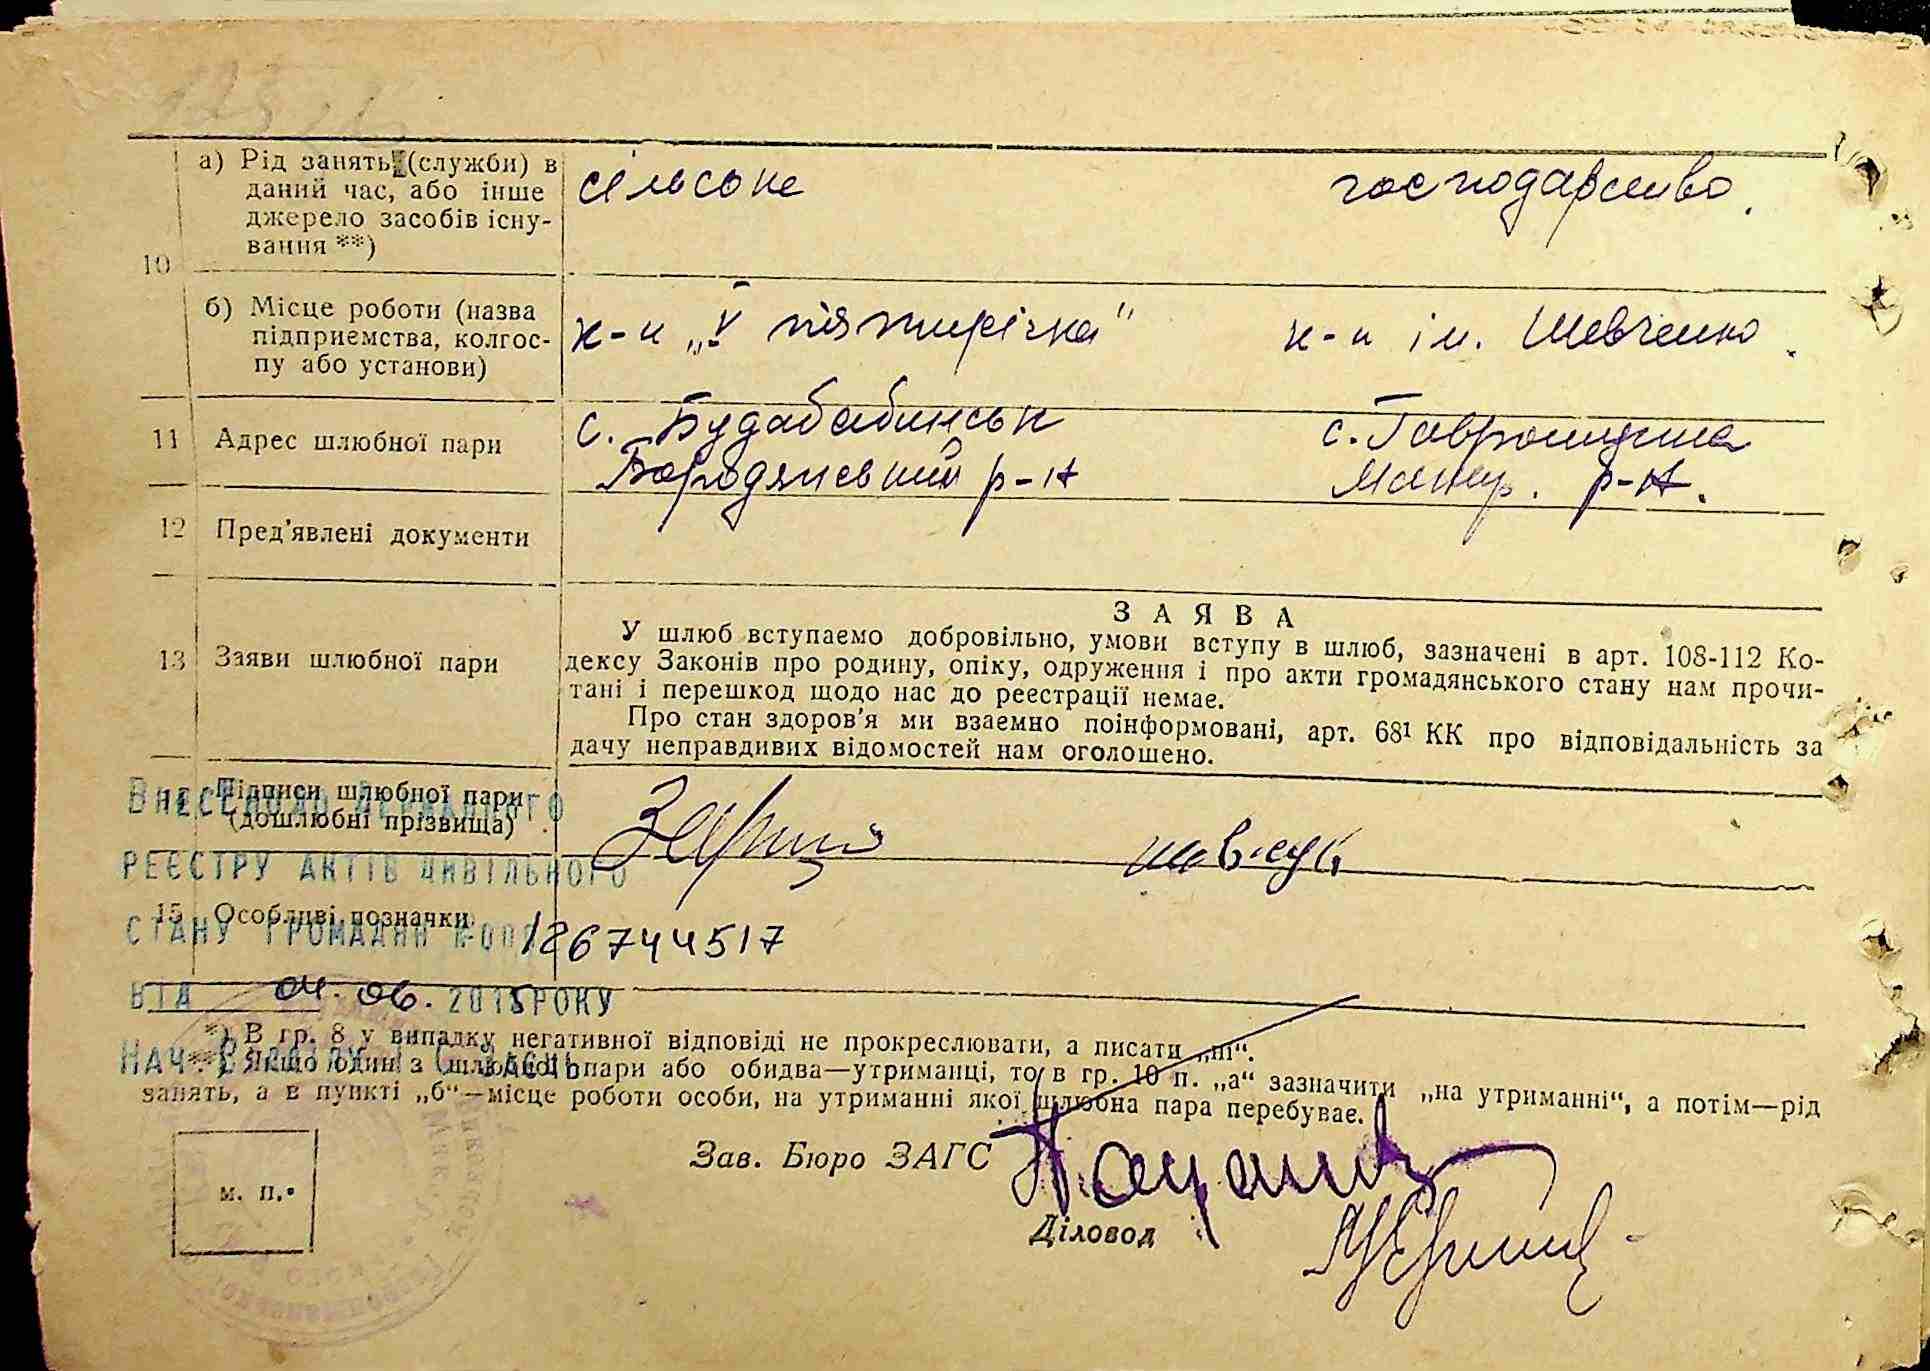 а) Рід занять (служби) в
даний час, або інше
джерело засобів існу-
вання **)
сільське господарство.
10
б) Місце роботи (назва
підприємства, колгос-
пу або установи)
к-п „V пятирічка" к-п ім. Шевченко.
11 Адрес шлюбної пари
с. Будабабинськ с. Гавронщина
Бородянський р-н Макар. р-н.
12 Пред'явлені документи
13 Заяви шлюбної пари
ЗАЯВА
У шлюб вступаємо добровільно, умови вступу в шлюб, зазначені в арт. 108-112 Ко-
дексу Законів про родину, опіку, одруження і про акти громадянського стану нам прочи-
тані і перешкод щодо нас до реєстрації немає.
Про стан здоров'я ми взаємно поінформовані, арт. 68¹ КК про відповідальність за
дачу неправдивих відомостей нам оголошено.
14 Підписи шлюбної пари
(дошлюбні прізвища)
Внесено до Державного
реєстру актів цивільного
15 Особливі позначки
стану громадян №00 126744517
від 04.06.2015 року
*) В гр. 8 у випадку негативної відповіді не прокреслювати, а писати „ні“.
Нач. відділу
**) Якщо один з шлюбної пари або обидва—утриманці, то в гр. 10 п. „а“ зазначити „на утриманні“, а потім—рід
занять, а в пункті „б“—місце роботи особи, на утриманні якої шлюбна пара перебуває.
Зав. Бюро ЗАГС
м. п.
Діловод